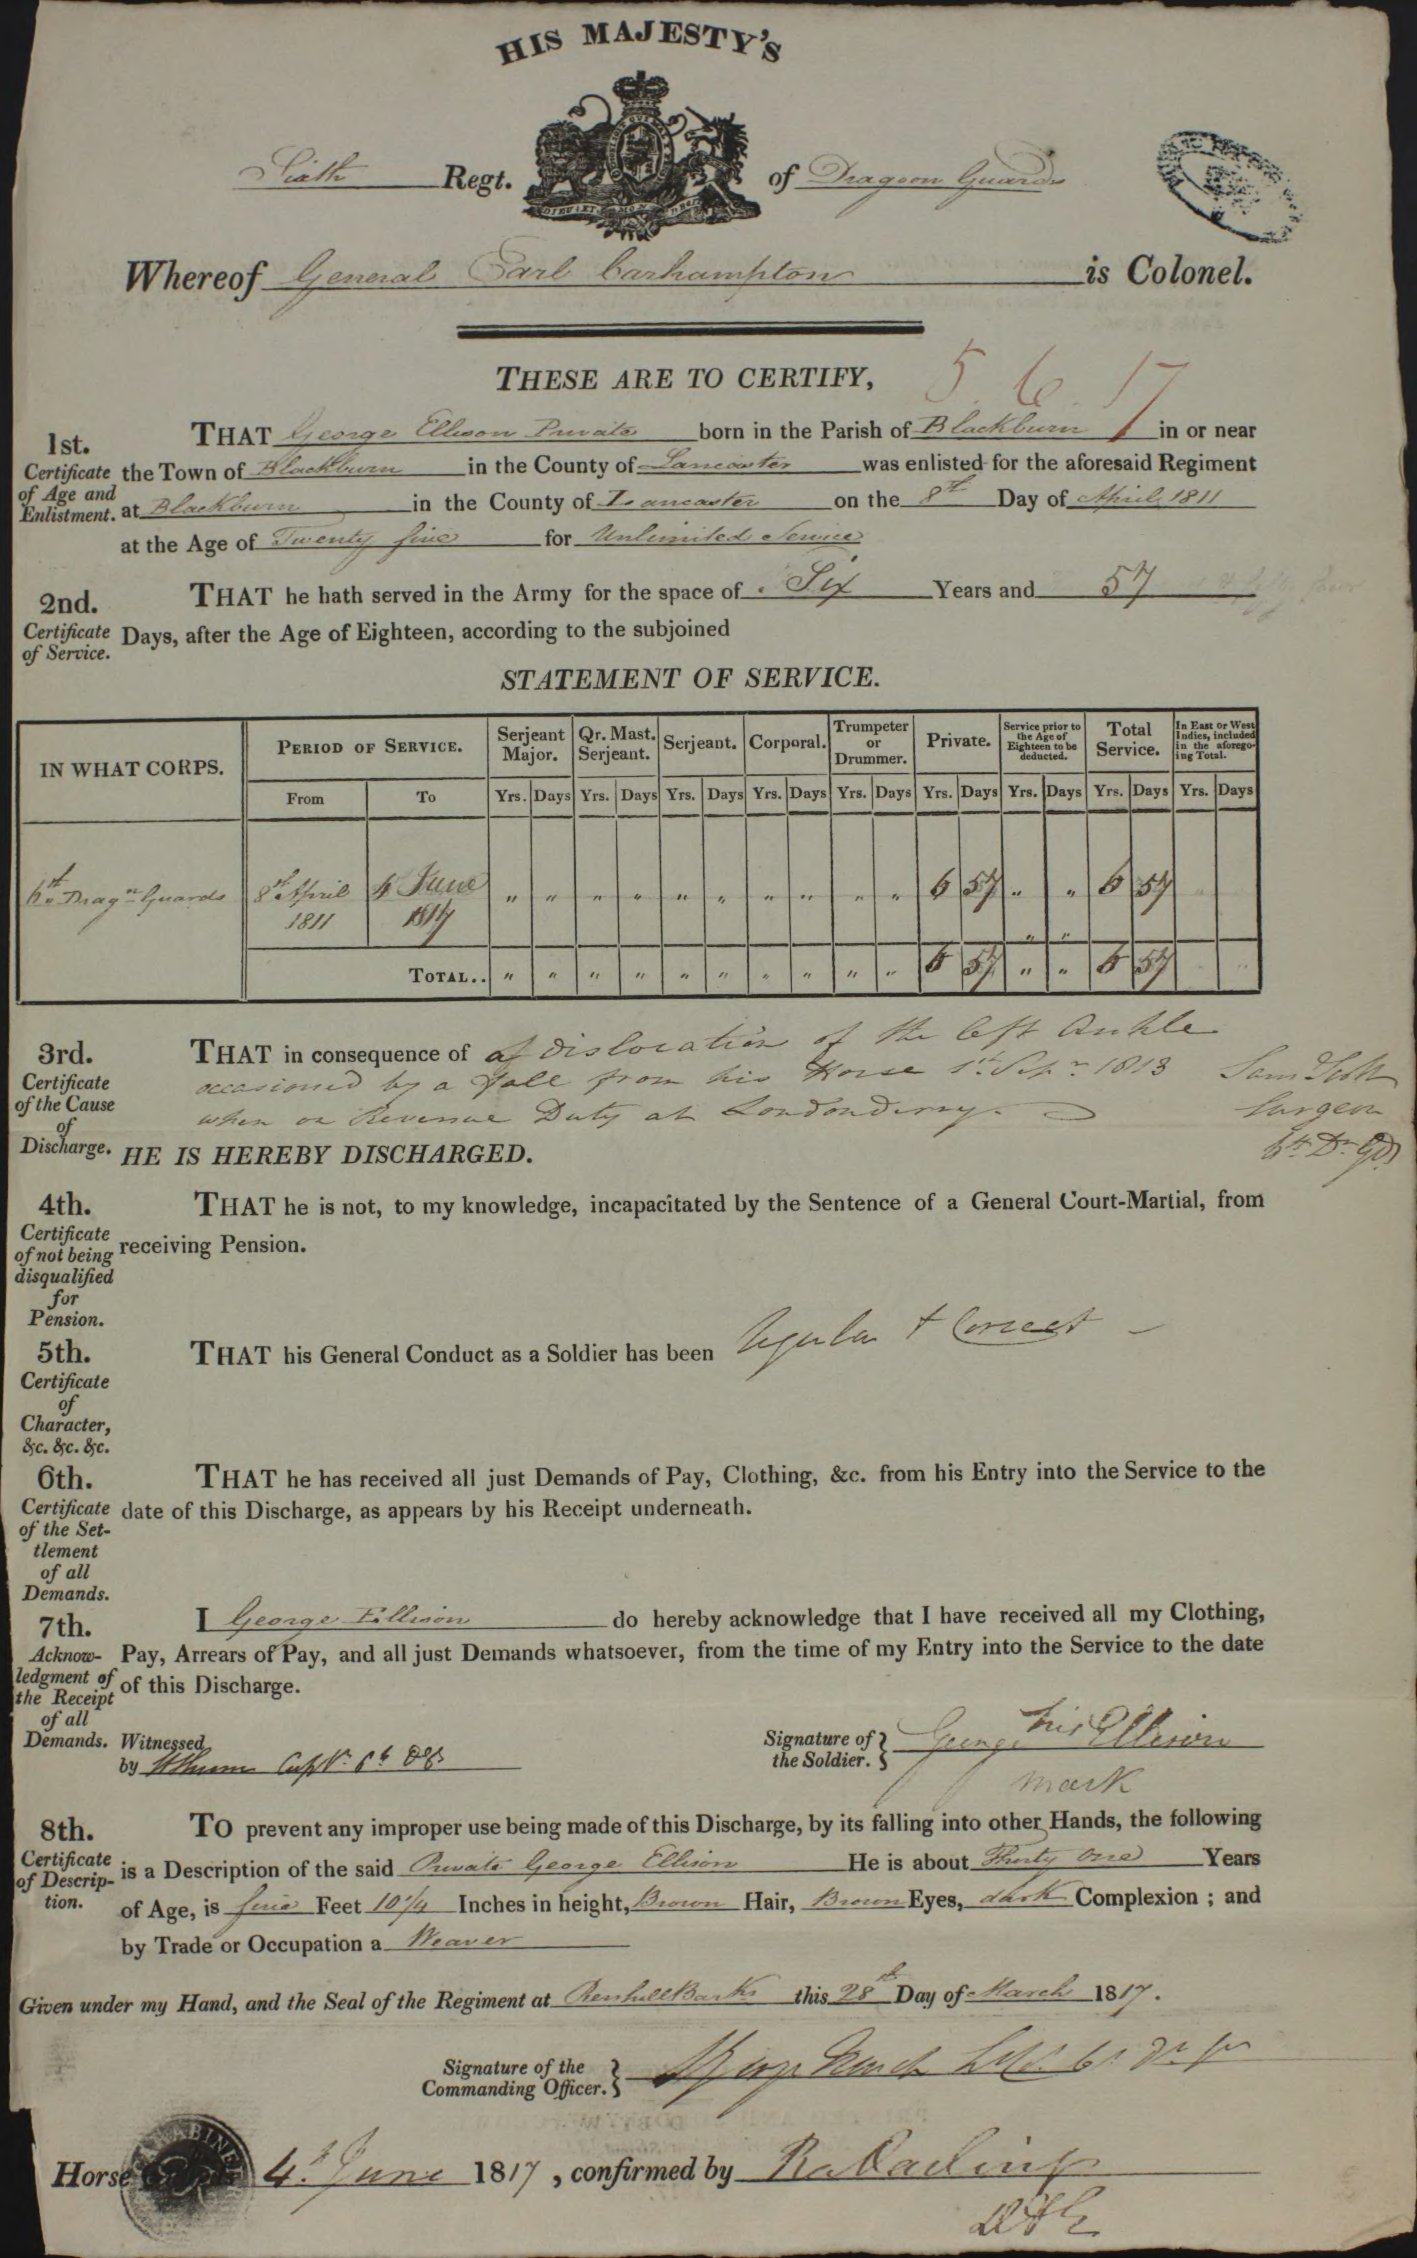 HIS MAJESTY'S
Sixth Regt. of Dragoon Guards
DIEU ET MON
Whereof General Earl Carhampton is Colonel.
THESE ARE TO CERTIFY,
5 6 17
1st.
Certificate
of Age and
Enlistment.
THAT George Ellison Private born in the Parish of Blackburn in or near
the Town of Blackburn in the County of Lancaster was enlisted for the aforesaid Regiment
at Blackburn in the County of Lancaster on the 8th Day of April 1811
at the Age of Twenty five for Unlimited Service
2nd.
Certificate
of Service.
THAT he hath served in the Army for the space of Six Years and 57
Days, after the Age of Eighteen, according to the subjoined
STATEMENT OF SERVICE.
IN WHAT CORPS. PERIOD OF SERVICE. Serjeant Major. Qr. Mast. Serjeant. Serjeant. Corporal. Trumpeter or Drummer. Private. Service prior to the Age of Eighteen to be deducted. Total Service. In East or West Indies, included in the aforegoing Total.
From To Yrs. Days Yrs. Days Yrs. Days Yrs. Days Yrs. Days Yrs. Days Yrs. Days Yrs. Days Yrs. Days
6th Dragn Guards 8th April 1811 4 June 1817 " " " " " " " " " " 6 57 " " 6 57
TOTAL.. " " " " " " " " " " 6 57 " " 6 57
3rd.
Certificate
of the Cause
of
Discharge.
THAT in consequence of a dislocation of the left Ankle
occasioned by a fall from his Horse 1st Sepr 1813
when on Revenue Duty at Londonderry.
Saml
Surgeon
6th Dn Gds
HE IS HEREBY DISCHARGED.
4th.
Certificate
of not being
disqualified
for
Pension.
THAT he is not, to my knowledge, incapacitated by the Sentence of a General Court-Martial, from
receiving Pension.
5th.
Certificate
of
Character,
&c. &c. &c.
THAT his General Conduct as a Soldier has been regular & Correct
6th.
Certificate
of the Set-
tlement
of all
Demands.
THAT he has received all just Demands of Pay, Clothing, &c. from his Entry into the Service to the
date of this Discharge, as appears by his Receipt underneath.
7th.
Acknow-
ledgment of
the Receipt
of all
Demands.
I George Ellison do hereby acknowledge that I have received all my Clothing,
Pay, Arrears of Pay, and all just Demands whatsoever, from the time of my Entry into the Service to the date
of this Discharge.
Witnessed
by Capt. 6th DG
Signature of
the Soldier. } George his Ellison
mark
8th.
Certificate
of Descrip-
tion.
TO prevent any improper use being made of this Discharge, by its falling into other Hands, the following
is a Description of the said Private George Ellison He is about Thirty one Years
of Age, is five Feet 10 1/4 Inches in height, Brown Hair, Brown Eyes, dark Complexion ; and
by Trade or Occupation a Weaver
Given under my Hand, and the Seal of the Regiment at this 28th Day of March 1817.
Signature of the
Commanding Officer. }
Horse 4th June 1817, confirmed by